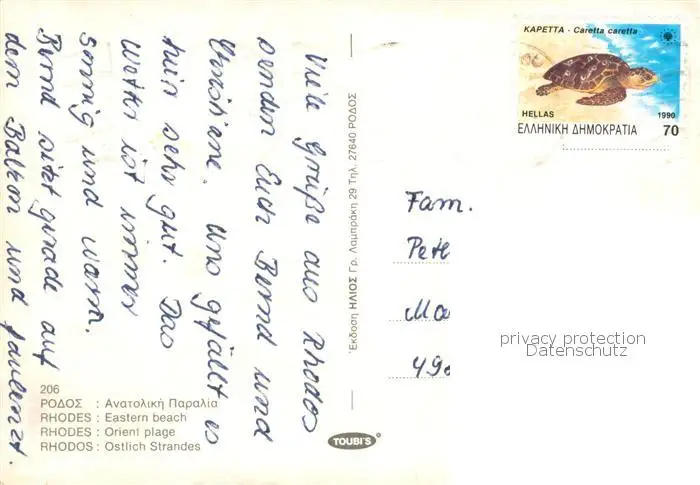 Viele Grüße aus Rhodos
senden Euch Bernd und
Christiane. Uns gefällt es
hier sehr gut. Das
Wetter ist immer
sonnig und warm.
Bernd sitzt gerade auf
dem Balkon und faulenzt.
206
ΡΟΔΟΣ : Ανατολική Παραλία
RHODES : Eastern beach
RHODES : Orient plage
RHODOS : Ostlich Strandes
Έκδοση ΗΛΙΟΣ Γρ. Λαμπράκη 29 Τηλ. 27640 ΡΟΔΟΣ
TOUBI'S
ΚΑΡΕΤΤΑ - Caretta caretta
HELLAS 1990
ΕΛΛΗΝΙΚΗ ΔΗΜΟΚΡΑΤΙΑ 70
Fam.
Pete
Ma
490
privacy protection
Datenschutz